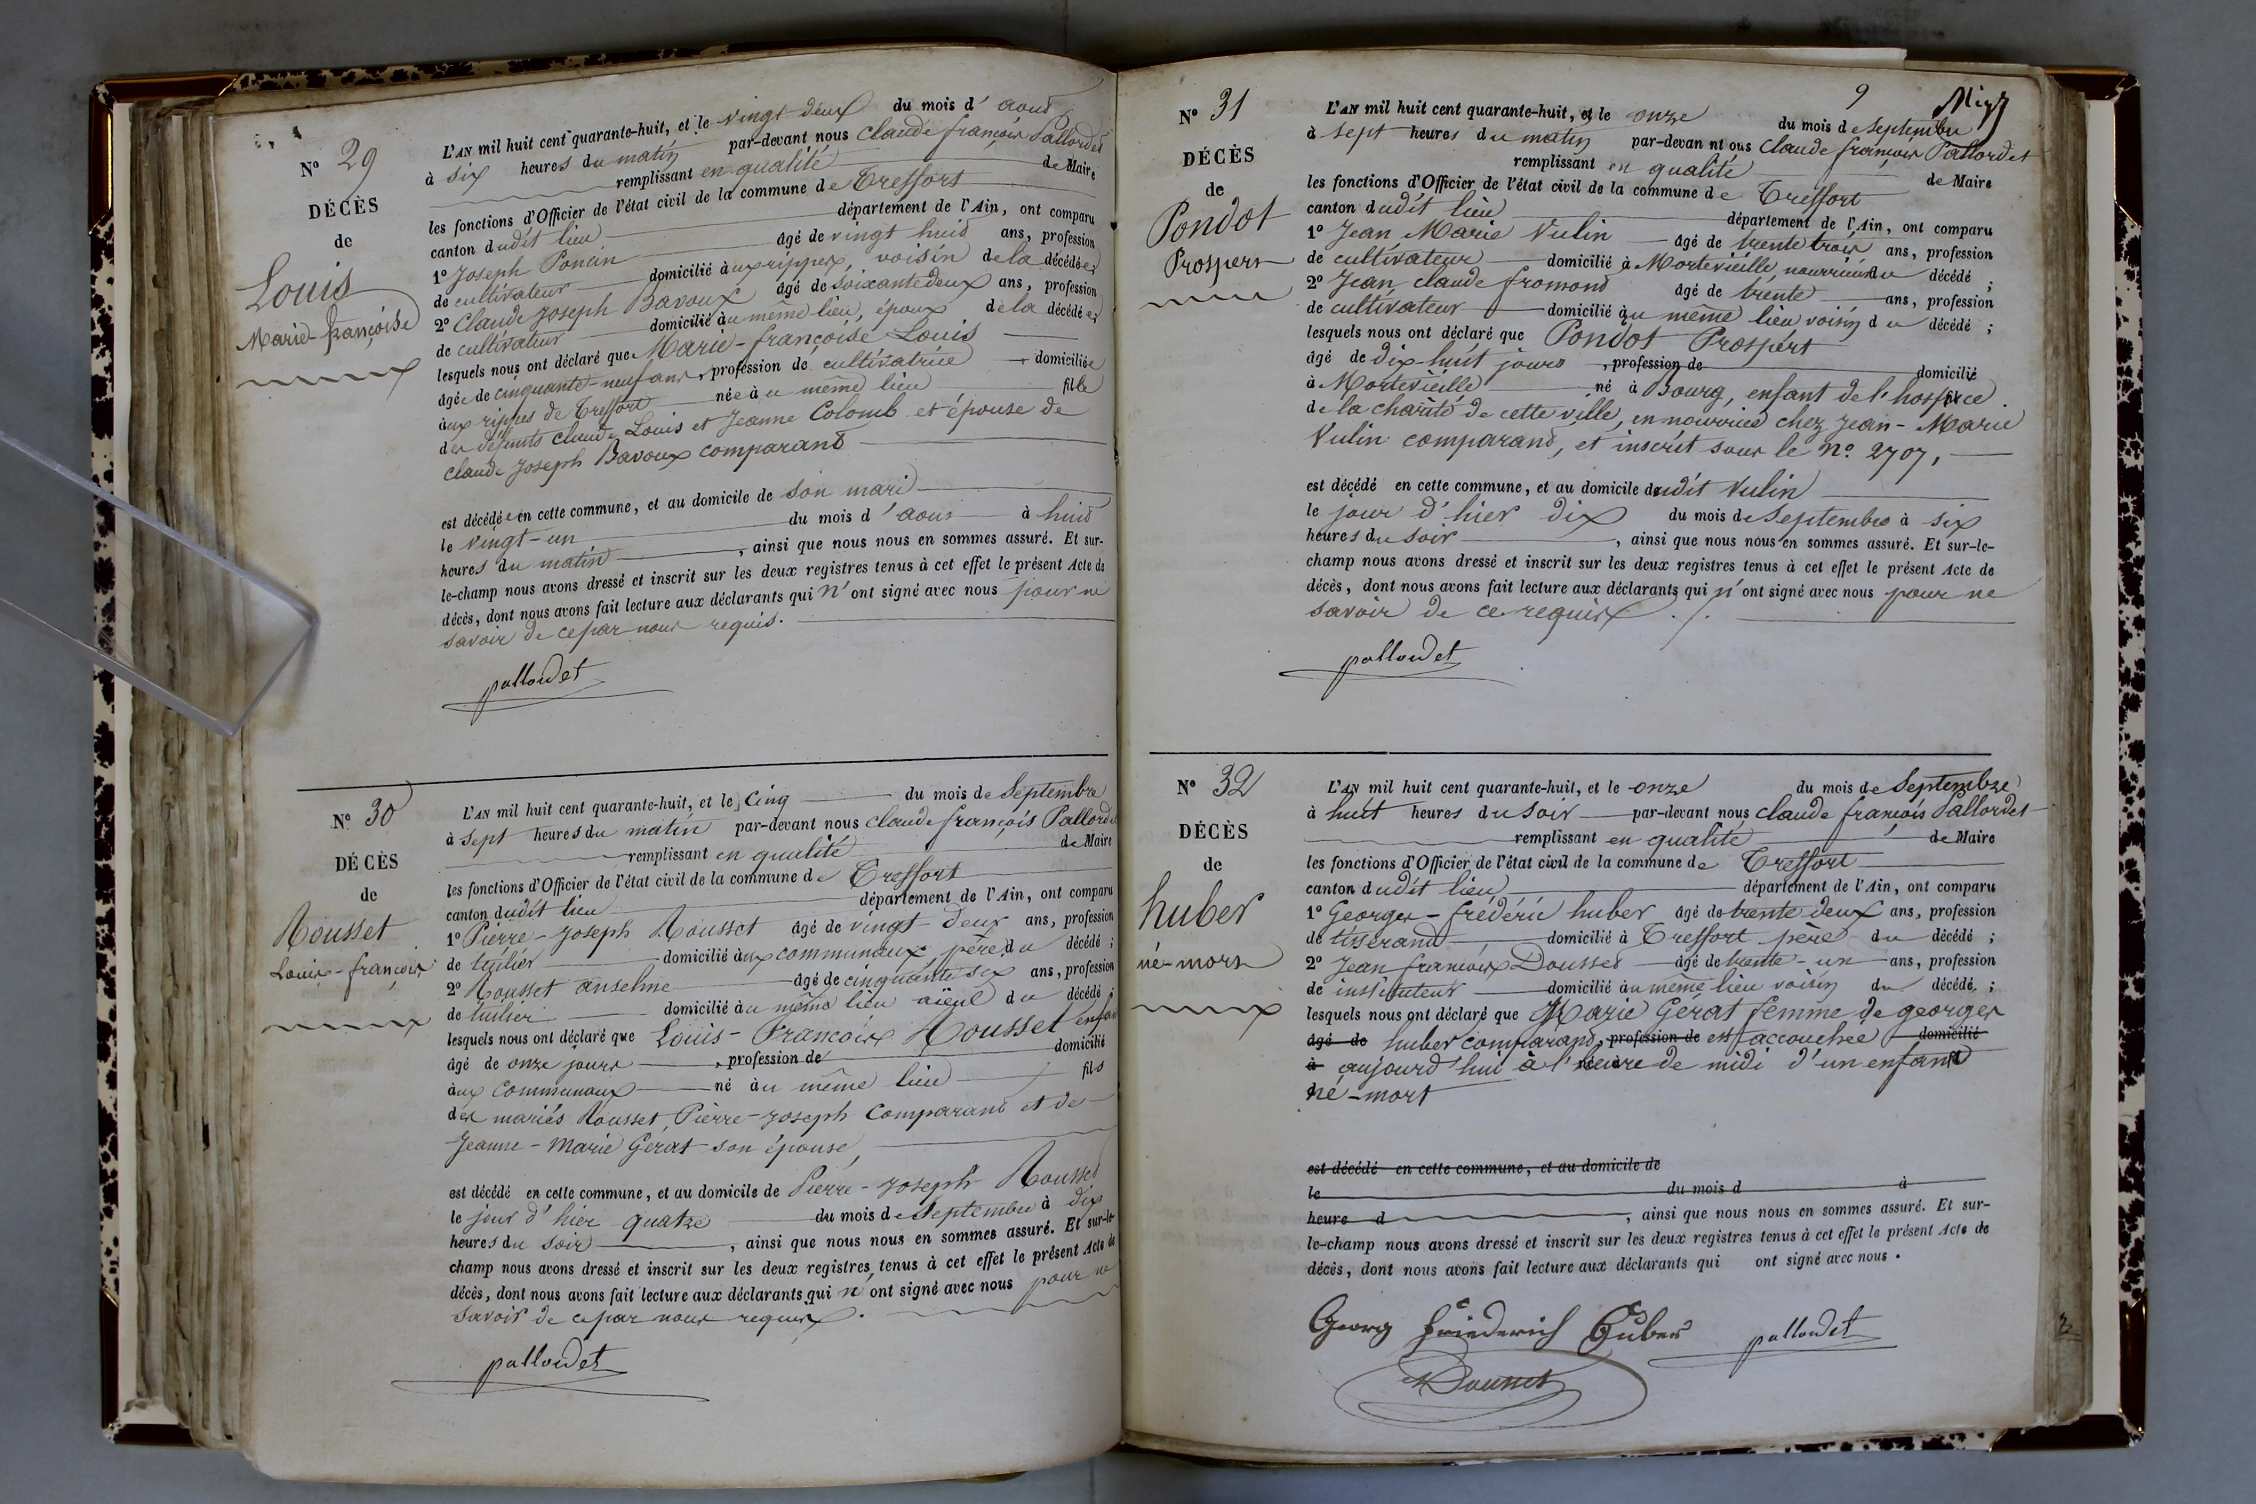 N° 29
DÉCÈS
de
Louis
Marie-françoise
L'AN mil huit cent quarante-huit, et le vingt deux du mois d'aout
à six heures du matin par-devant nous Claude françois Pallordet
remplissant en qualité de Maire
les fonctions d'Officier de l'état civil de la commune de Treffort
canton dudit lieu département de l'Ain, ont comparu
1° Joseph Poncin âgé de vingt huit ans, profession
de cultivateur domicilié aux rippes, voisin de la décédée,
2° Claude Joseph Bavoux âgé de soixante deux ans, profession
de cultivateur domicilié au même lieu, époux de la décédée,
lesquels nous ont déclaré que Marie-françoise Louis
âgée de cinquante-neuf ans, profession de cultivatrice domiciliée
aux rippes de Treffort née au même lieu fille
des défunts claude Louis et Jeanne Colomb et épouse de
claude Joseph Bavoux comparant
est décédée en cette commune, et au domicile de son mari
le vingt-un du mois d'aout à huit
heures du matin, ainsi que nous nous en sommes assuré. Et sur-
le-champ nous avons dressé et inscrit sur les deux registres tenus à cet effet le présent Acte de
décès, dont nous avons fait lecture aux déclarants qui n'ont signé avec nous pour ne
savoir de ce par nous requis.
pallordet
N° 30
DÉCÈS
de
Rousset
Louis-françois
L'AN mil huit cent quarante-huit, et le Cinq du mois de Septembre
à sept heures du matin par-devant nous Claude françois Pallordet
remplissant en qualité de Maire
les fonctions d'Officier de l'état civil de la commune de Treffort
canton dudit lieu département de l'Ain, ont comparu
1° Pierre-Joseph Rousset âgé de vingt deux ans, profession
de tuilier domicilié aux communaux père du décédé ;
2° Rousset anselme âgé de cinquante six ans, profession
de tuilier domicilié au même lieu aïeul du décédé ;
lesquels nous ont déclaré que Louis-François Rousset enfant
âgé de onze jours, profession de domicilié
aux communaux né au même lieu fils
des mariés Rousset, Pierre-Joseph Comparant et de
Jeanne-Marie Gérat son épouse,
est décédé en cette commune, et au domicile de Pierre-Joseph Rousset
le jour d'hier quatre du mois de Septembre à dix
heures du soir, ainsi que nous nous en sommes assuré. Et sur-le-
champ nous avons dressé et inscrit sur les deux registres tenus à cet effet le présent Acte de
décès, dont nous avons fait lecture aux déclarants qui n'ont signé avec nous pour ne
savoir de ce par nous requis.
pallordet
9
N° 31
DÉCÈS
de
Pondot
Prosper
L'AN mil huit cent quarante-huit, et le onze du mois de Septembre
à sept heures du matin par-devan nt ous Claude françois Pallordet
remplissant en qualité de Maire
les fonctions d'Officier de l'état civil de la commune de Treffort
canton dudit lieu département de l'Ain, ont comparu
1° Jean Marie Vulin âgé de trente trois ans, profession
de cultivateur domicilié à Mortevieille, nourricier du décédé ;
2° Jean claude fromond âgé de trente ans, profession
de cultivateur domicilié au même lieu voisin du décédé ;
lesquels nous ont déclaré que Pondot Prospert
âgé de dix huit jours, profession de domicilié
à Mortevieille né à Bourg, enfant de l'hospice
de la charité de cette ville, en nourrice chez Jean-Marie
Vulin comparant, et inscrit sous le N°. 2707,
est décédé en cette commune, et au domicile dudit Vulin
le jour d'hier dix du mois de Septembre à six
heures du soir, ainsi que nous nous en sommes assuré. Et sur-le-
champ nous avons dressé et inscrit sur les deux registres tenus à cet effet le présent Acte de
décès, dont nous avons fait lecture aux déclarants qui n'ont signé avec nous pour ne
savoir de ce requis ./.
pallordet
N° 32
DÉCÈS
de
huber
né-mort
L'AN mil huit cent quarante-huit, et le onze du mois de Septembre
à huit heures du soir par-devant nous claude françois Pallordet
remplissant en qualité de Maire
les fonctions d'Officier de l'état civil de la commune de Treffort
canton dudit lieu département de l'Ain, ont comparu
1° Georges-frédéric huber âgé de trente deux ans, profession
de tisserand domicilié à Treffort père du décédé ;
2° Jean françois Dousset âgé de trente-un ans, profession
de instituteur domicilié au même lieu voisin du décédé ;
lesquels nous ont déclaré que Marie Gérat femme de georges
âgé de huber comparant, profession de est accouchée domicilié
à aujourd'hui à l'heure de midi d'un enfant
né-mort
est décédé en cette commune, et au domicile de
le du mois d à
heure d, ainsi que nous nous en sommes assuré. Et sur-
le-champ nous avons dressé et inscrit sur les deux registres tenus à cet effet le présent Acte de
décès, dont nous avons fait lecture aux déclarants qui ont signé avec nous.
Georg Friederich Huber pallordet
Dousset